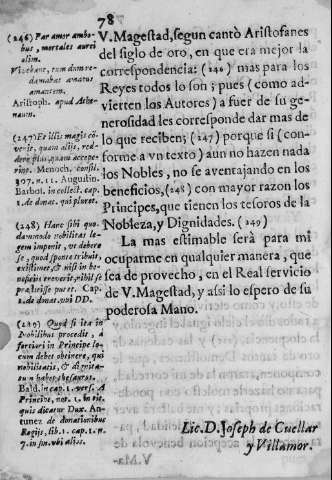 78
(246) Par amor ambo-
bus, mortales aurei
alim.
amantem.
Aristoph. apud Athe-
næum.
(247) Et illis magis có-
Menoch. consil.
307. n. 11. Augustin.
Barbos. in collect. cap.
1. de donat. qui plures.
(248) Hanc sibi quo-
dammodo nobilitas le-
gem imponit, ut debere
se, quod sponte tribuit,
existimet, & nisi in be-
præstitisse putet. Cap.
1. de donat. ubi DD.
(249) Quod si ita in
Nobilibus procedit, à
fortiori in Principe lo-
cum debet obtinere, qui
nobilitatis, & dignita-
tum habet thesauros.
Bald. in cap. 1. vers. A
Principe, nov. 1. in tit.
quis dicatur Dux. An-
tunez de donationibus
Regijs, lib. 1. cap. 1. n.
7. in fin. ubi alios.
V. Magestad, segun cantò Aristofanes
del siglo de oro, en que era mejor la
correspondencia: (246) mas para los
Reyes todos lo son; pues (como ad-
vierten los Autores) a fuer de su ge-
nerosidad les corresponde dar mas de
lo que reciben; (247) porque si (con-
forme a vn texto) aun no hazen nada
los Nobles, no se aventajando en los
beneficios, (248) con mayor razon los
Principes, que tienen los tesoros de la
Nobleza, y Dignidades. (249)
La mas estimable serà para mi
ocuparme en qualquier manera, que
sea de provecho, en el Real servicio
de V. Magestad, y assi lo espero de su
poderosa Mano.
Lic. D. Joseph de Cuellar
y Villamor.